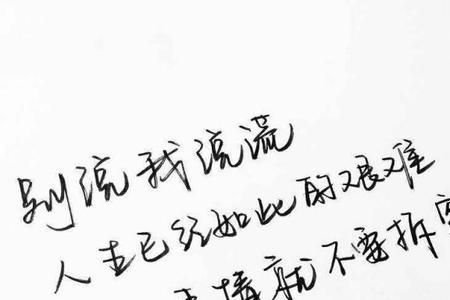 别说我说谎
人生已经如此的艰难
情就不要拆